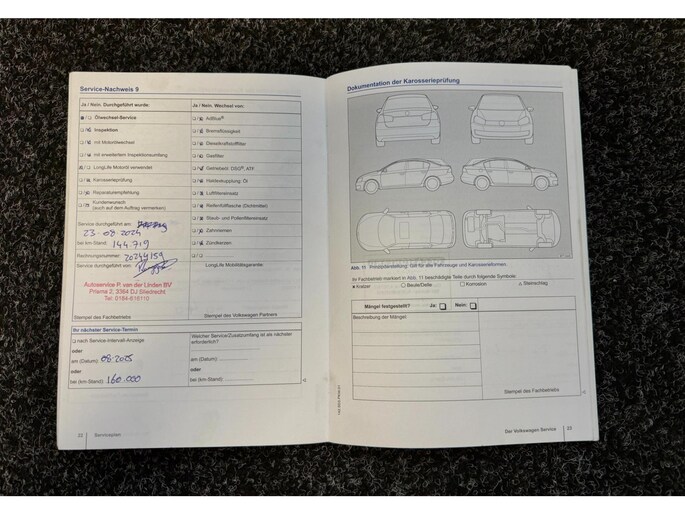 Service-Nachweis 9
Ja / Nein. Durchgeführt wurde:
Ölwechsel-Service
Inspektion
mit Motorölwechsel
mit erweitertem Inspektionsumfang
LongLife Motoröl verwendet
Karosserieprüfung
Reparaturempfehlung
Kundenwunsch
(auch auf dem Auftrag vermerken)
Service durchgeführt am:
23-08-2024
bei km-Stand: 144.719
Rechnungsnummer: 20244159
Service durchgeführt von:
Autoservice P. van der Linden BV
3364 DJ Sliedrecht
Tel: 0184-616110
Stempel des Fachbetriebs
Ja / Nein. Wechsel von:
AdBlue®
Bremsflüssigkeit
Dieselkraftstofffilter
Gasfilter
Getriebeöl: DSG®, ATF
Haldexkupplung: Öl
Luftfiltereinsatz
Reifenfüllflasche (Dichtmittel)
Staub- und Pollenfiltereinsatz
Zahnriemen
Zündkerzen
LongLife Mobilitätsgarantie:
Stempel des Volkswagen Partners
Ihr nächster Service-Termin
nach Service-Intervall-Anzeige
oder
am (Datum): 08-2025
oder
bei (km-Stand): 160.000
Welcher Service/Zusatzumfang ist als nächster
erforderlich?
am (Datum):
oder
bei (km-Stand):
22 Serviceplan
Dokumentation der Karosserieprüfung
Abb. 11 Prinzipdarstellung: Gilt für alle Fahrzeuge und Karosserieformen.
Ihr Fachbetrieb markiert in Abb. 11 beschädigte Teile durch folgende Symbole:
Kratzer Beule/Delle Korrosion Steinschlag
Mängel festgestellt? Ja: Nein:
Beschreibung der Mängel:
Stempel des Fachbetriebs
Der Volkswagen Service 23